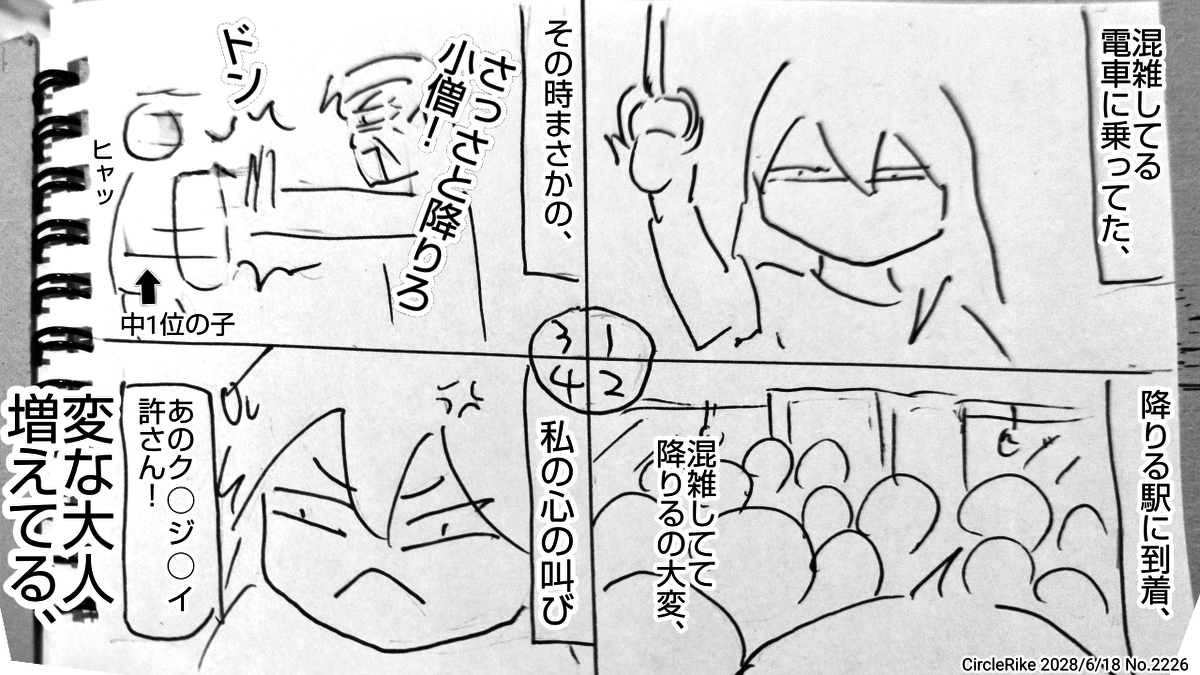 混雑してる
電車に乗ってた、
1
降りる駅に到着、
混雑してて
降りるの大変、
2
その時まさかの、
さっさと降りろ
小僧！
ドン
ヒャッ
中1位の子
3
私の心の叫び
あのク○ジ○ィ
許さん！
4
変な大人
増えてる〟
CircleRike 2028/6/18 No.2226